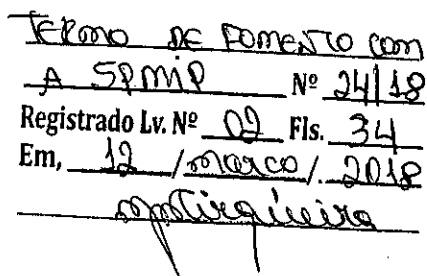 TERMO DE FOMENTO COM
A SPMIP Nº 24/18
Registrado Lv. Nº 02 Fls. 34
Em, 12 / março / 2018